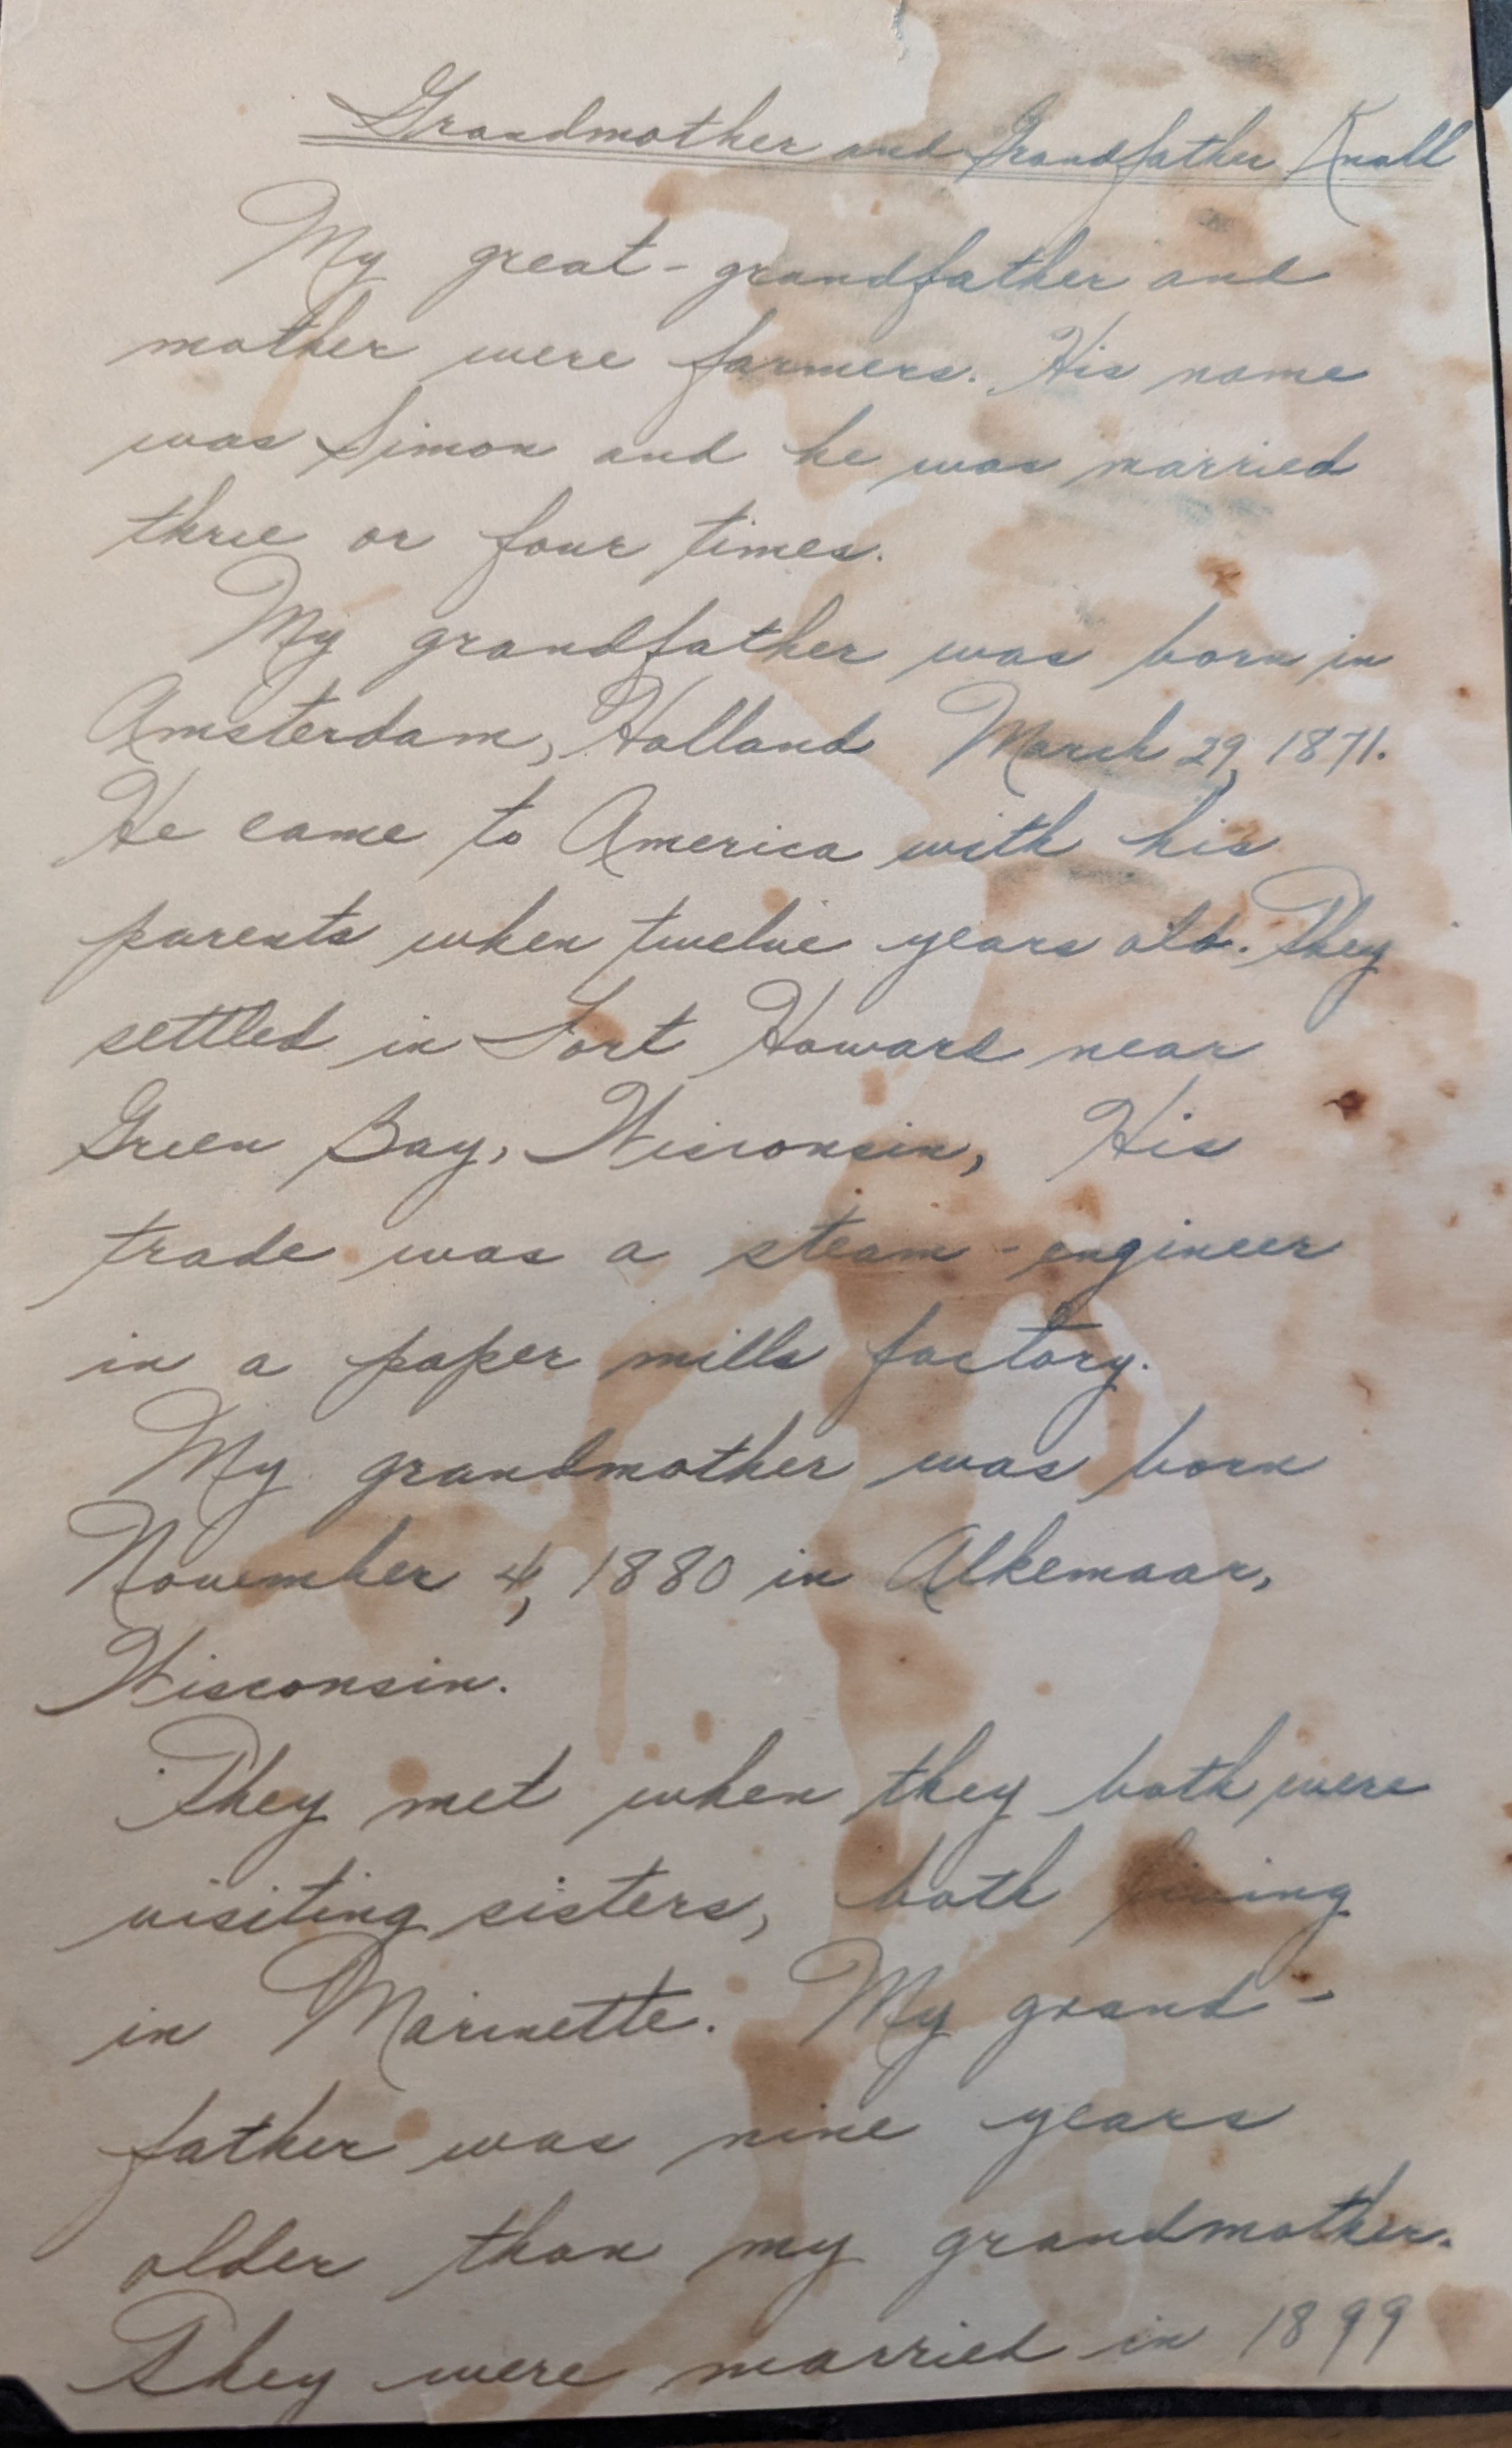 Grandmother and Grandfather Knoll
My great-grandfather and
mother were farmers. His name
was Simon and he was married
three or four times.
My grandfather was born in
Amsterdam, Holland March 29, 1871.
He came to America with his
parents when twelve years old. They
settled in Fort Howard near
Green Bay, Wisconsin, His
trade was a steam-engineer
in a paper mills factory.
My grandmother was born
November 4, 1880 in Alkemaar,
Wisconsin.
They met when they both were
visiting sisters, both living
in Marinette. My grand-
father was nine years
older than my grandmother.
They were married in 1899